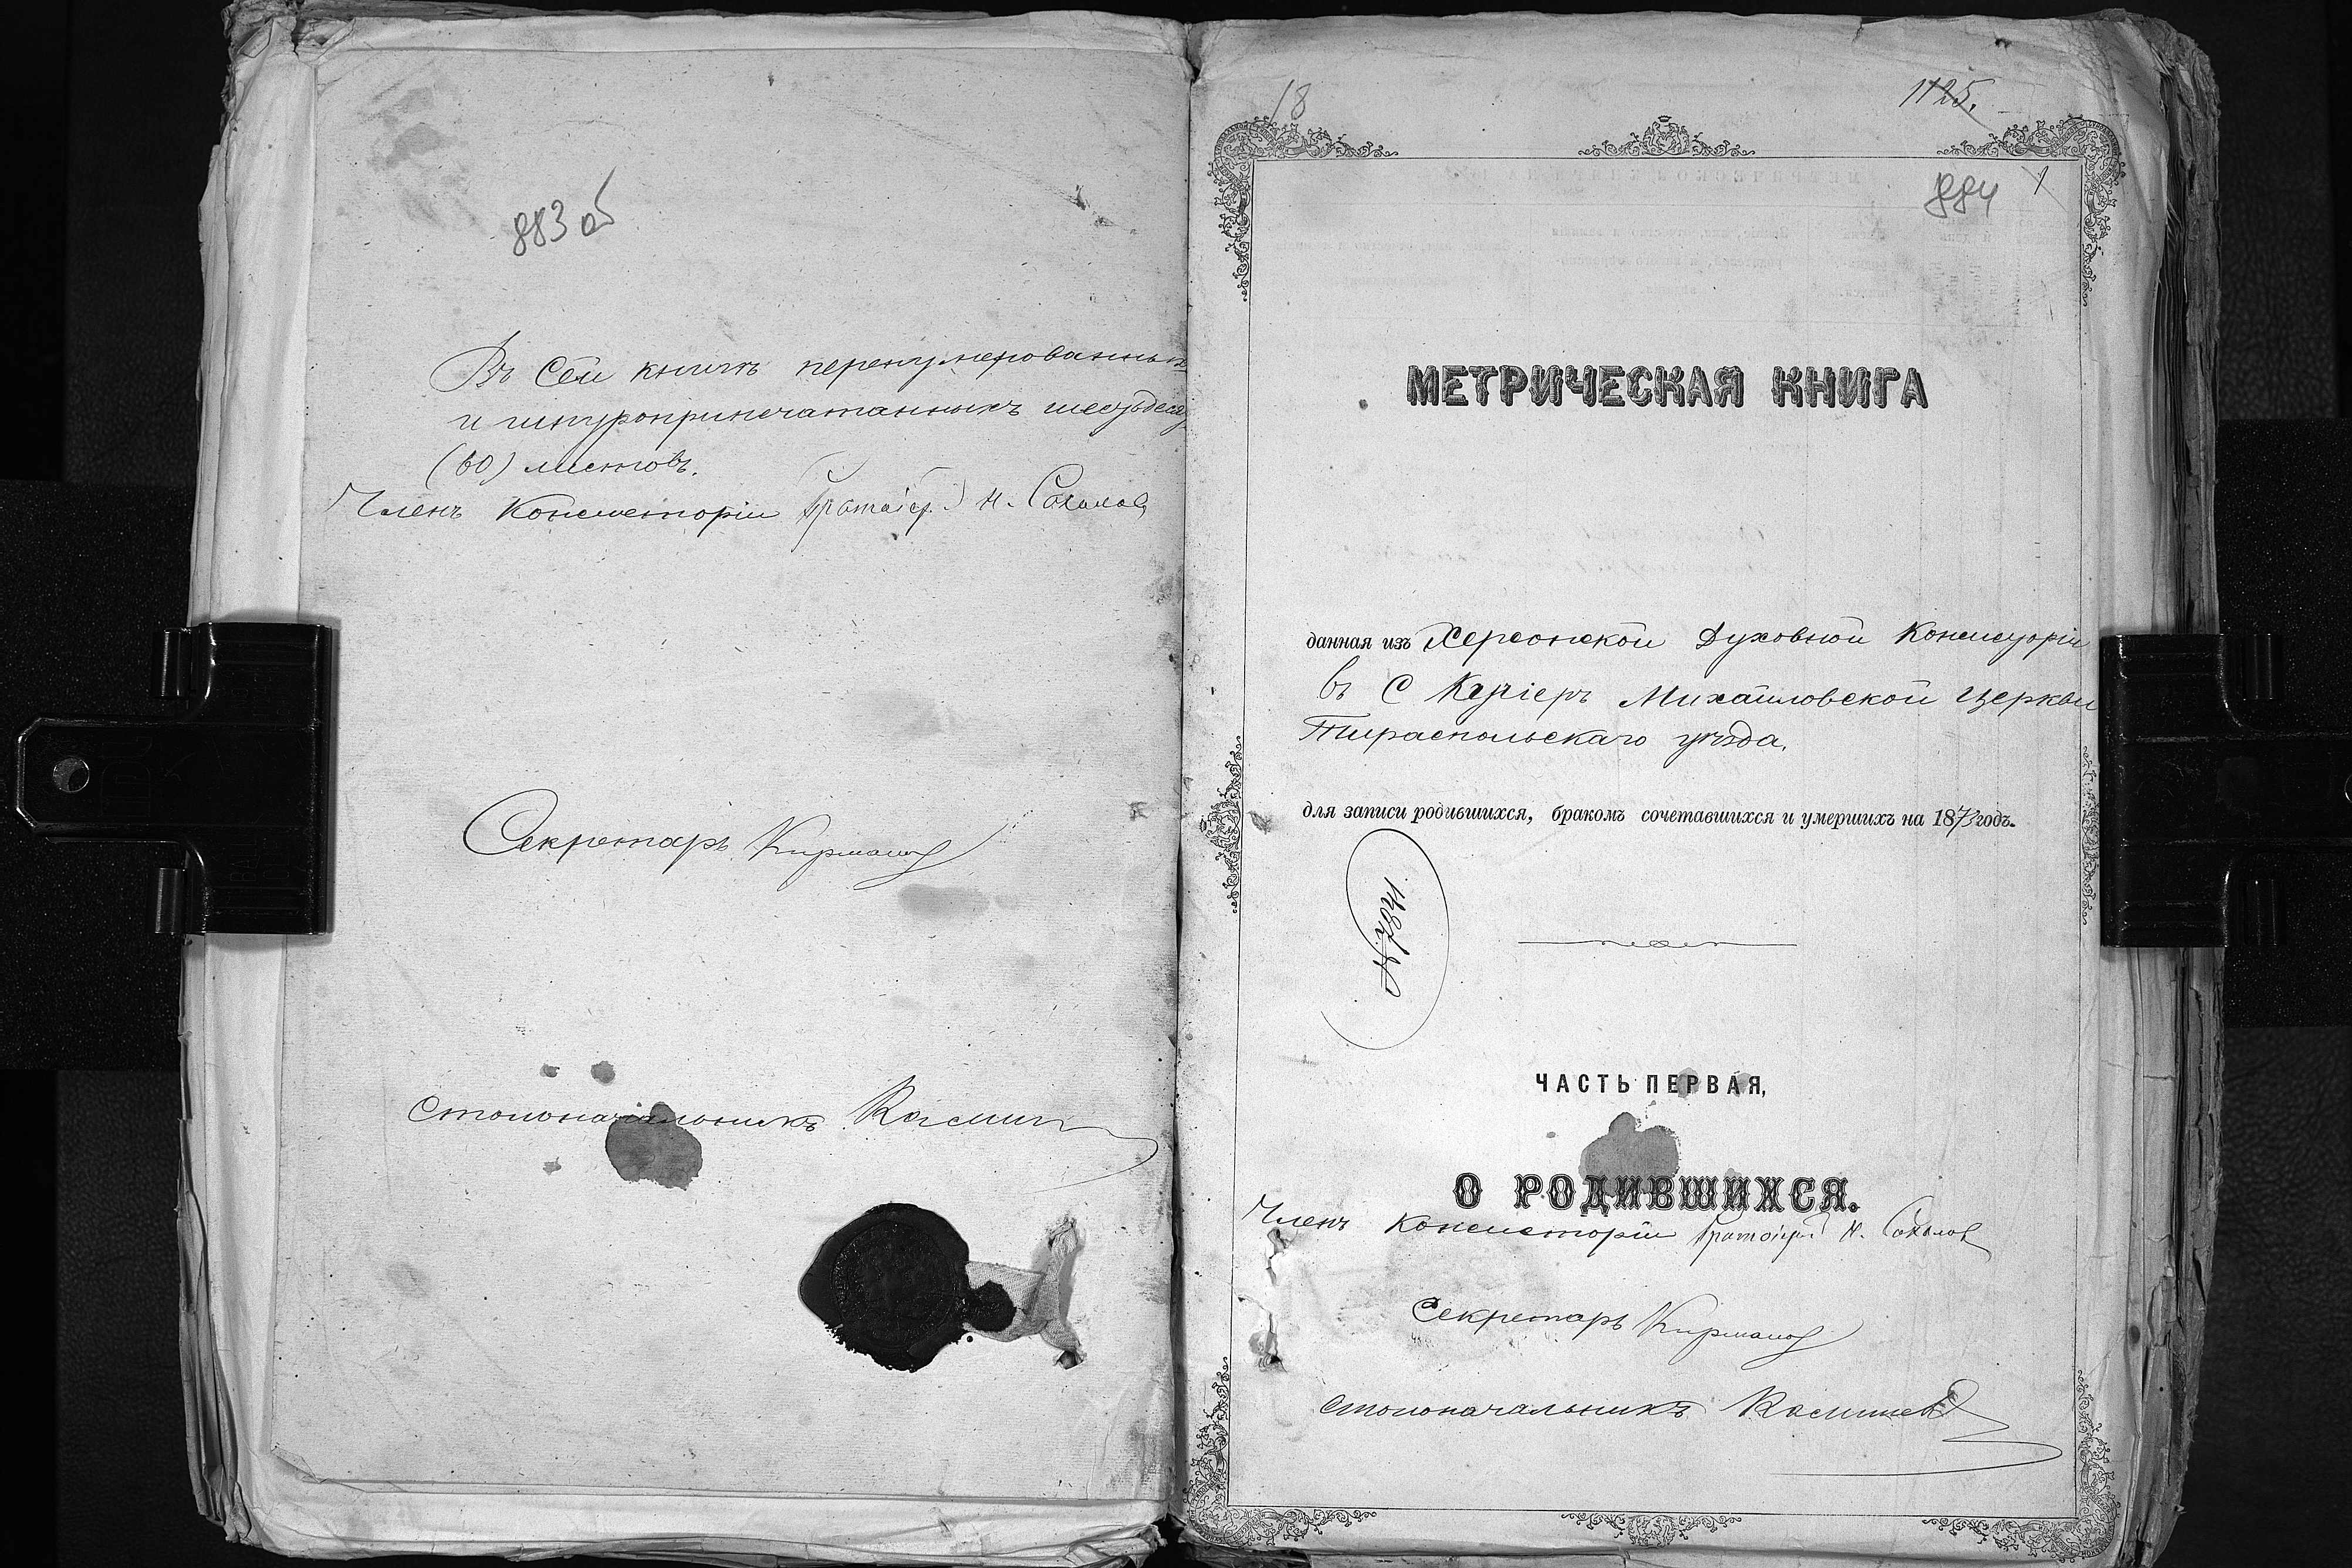 883 об
Въ Сей книгѣ перенумерованныхъ
и шнуроприпечатанныхъ шестьдесят
(60) листовъ.
Членъ Консисторіи Протоіер. Н. Соколов
Секретарь
Столоначальникъ
18
1125.
884
1
МЕТРИЧЕСКАЯ КНИГА
данная изъ Херсонской Духовной Консисторіи
въ С Михайловской церкви
Тираспольскаго уѣзда.
для записи родившихся, бракомъ сочетавшихся и умершихъ на 1873 годъ.
№ 7841
ЧАСТЬ ПЕРВАЯ,
О РОДИВШИХСЯ.
Членъ Консисторіи Протоіер. Н. Соколов
Секретарь
Столоначальникъ